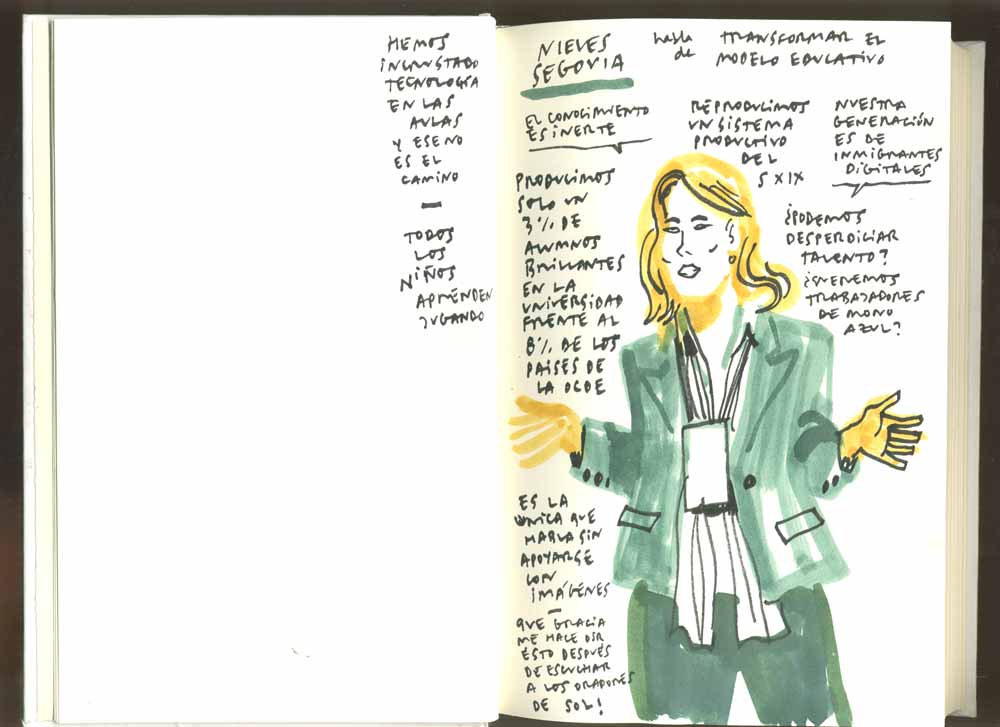 HEMOS
INCRUSTADO
TECNOLOGÍA
EN LAS
AULAS
Y ESE NO
ES EL
CAMINO
—
TODOS
LOS
NIÑOS
APRENDEN
JUGANDO
NIEVES
SEGOVIA
habla
de
TRANSFORMAR EL
MODELO EDUCATIVO
EL CONOCIMIENTO
ES INERTE
REPRODUCIMOS
UN SISTEMA
PRODUCTIVO
DEL
S XIX
NUESTRA
GENERACIÓN
ES DE
INMIGRANTES
DIGITALES
PRODUCIMOS
SOLO UN
3% DE
ALUMNOS
BRILLANTES
EN LA
UNIVERSIDAD
FRENTE AL
8% DE LOS
PAISES DE
LA OCDE
¿PODEMOS
DESPERDICIAR
TALENTO?
¿QUEREMOS
TRABAJADORES
DE MONO
AZUL?
ES LA
ÚNICA QUE
HABLA SIN
APOYARSE
CON
IMÁGENES
—
QUE GRACIA
ME HACE OIR
ESTO DESPUÉS
DE ESCUCHAR
A LOS ORADORES
DE SOL!